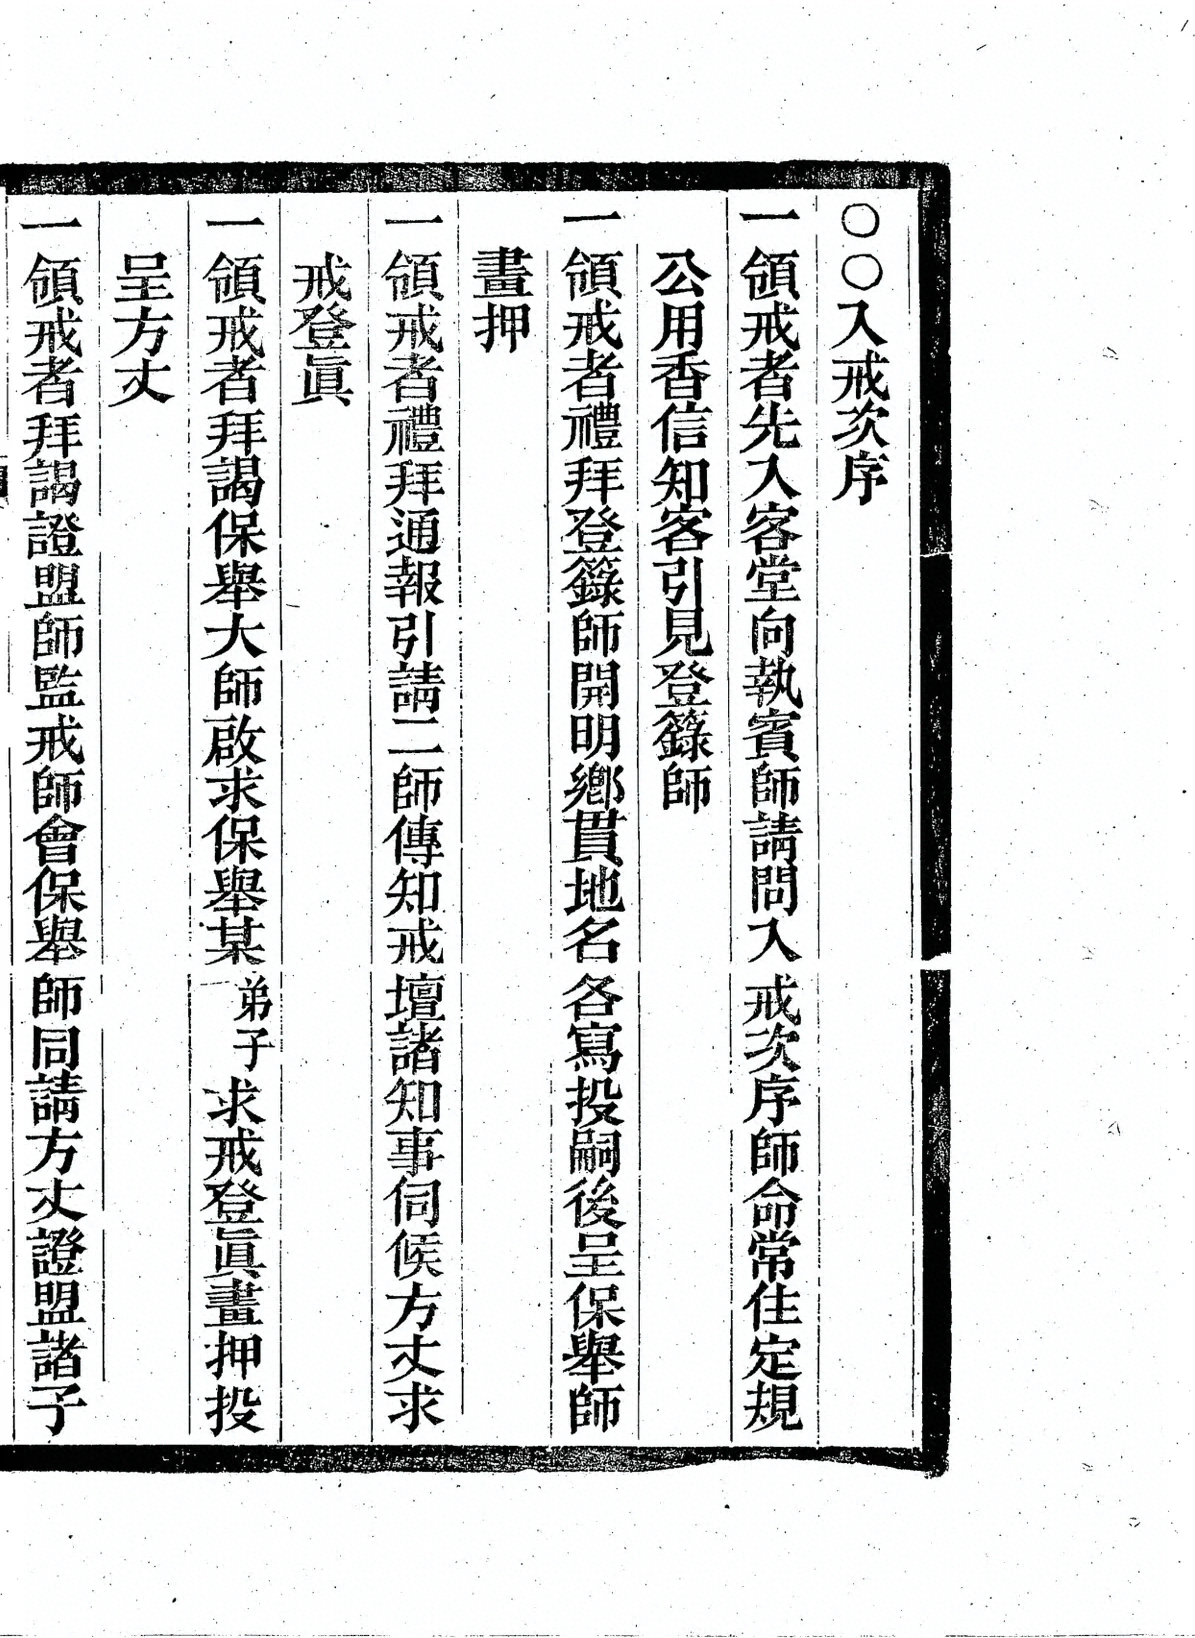 ○○入戒次序
一領戒者先入客堂向執賓師請問入戒次序師命常住定規
公用香信知客引見登籙師
一領戒者禮拜登籙師開明鄉貫地名各寫投嗣後呈保舉師
畫押
一領戒者禮拜通報引請二師傳知戒壇諸知事伺候方丈求
戒登眞
一領戒者拜謁保舉大師啟求保舉某弟子求戒登眞畫押投
呈方丈
一領戒者拜謁證盟師監戒師會保舉師同請方丈證盟諸子